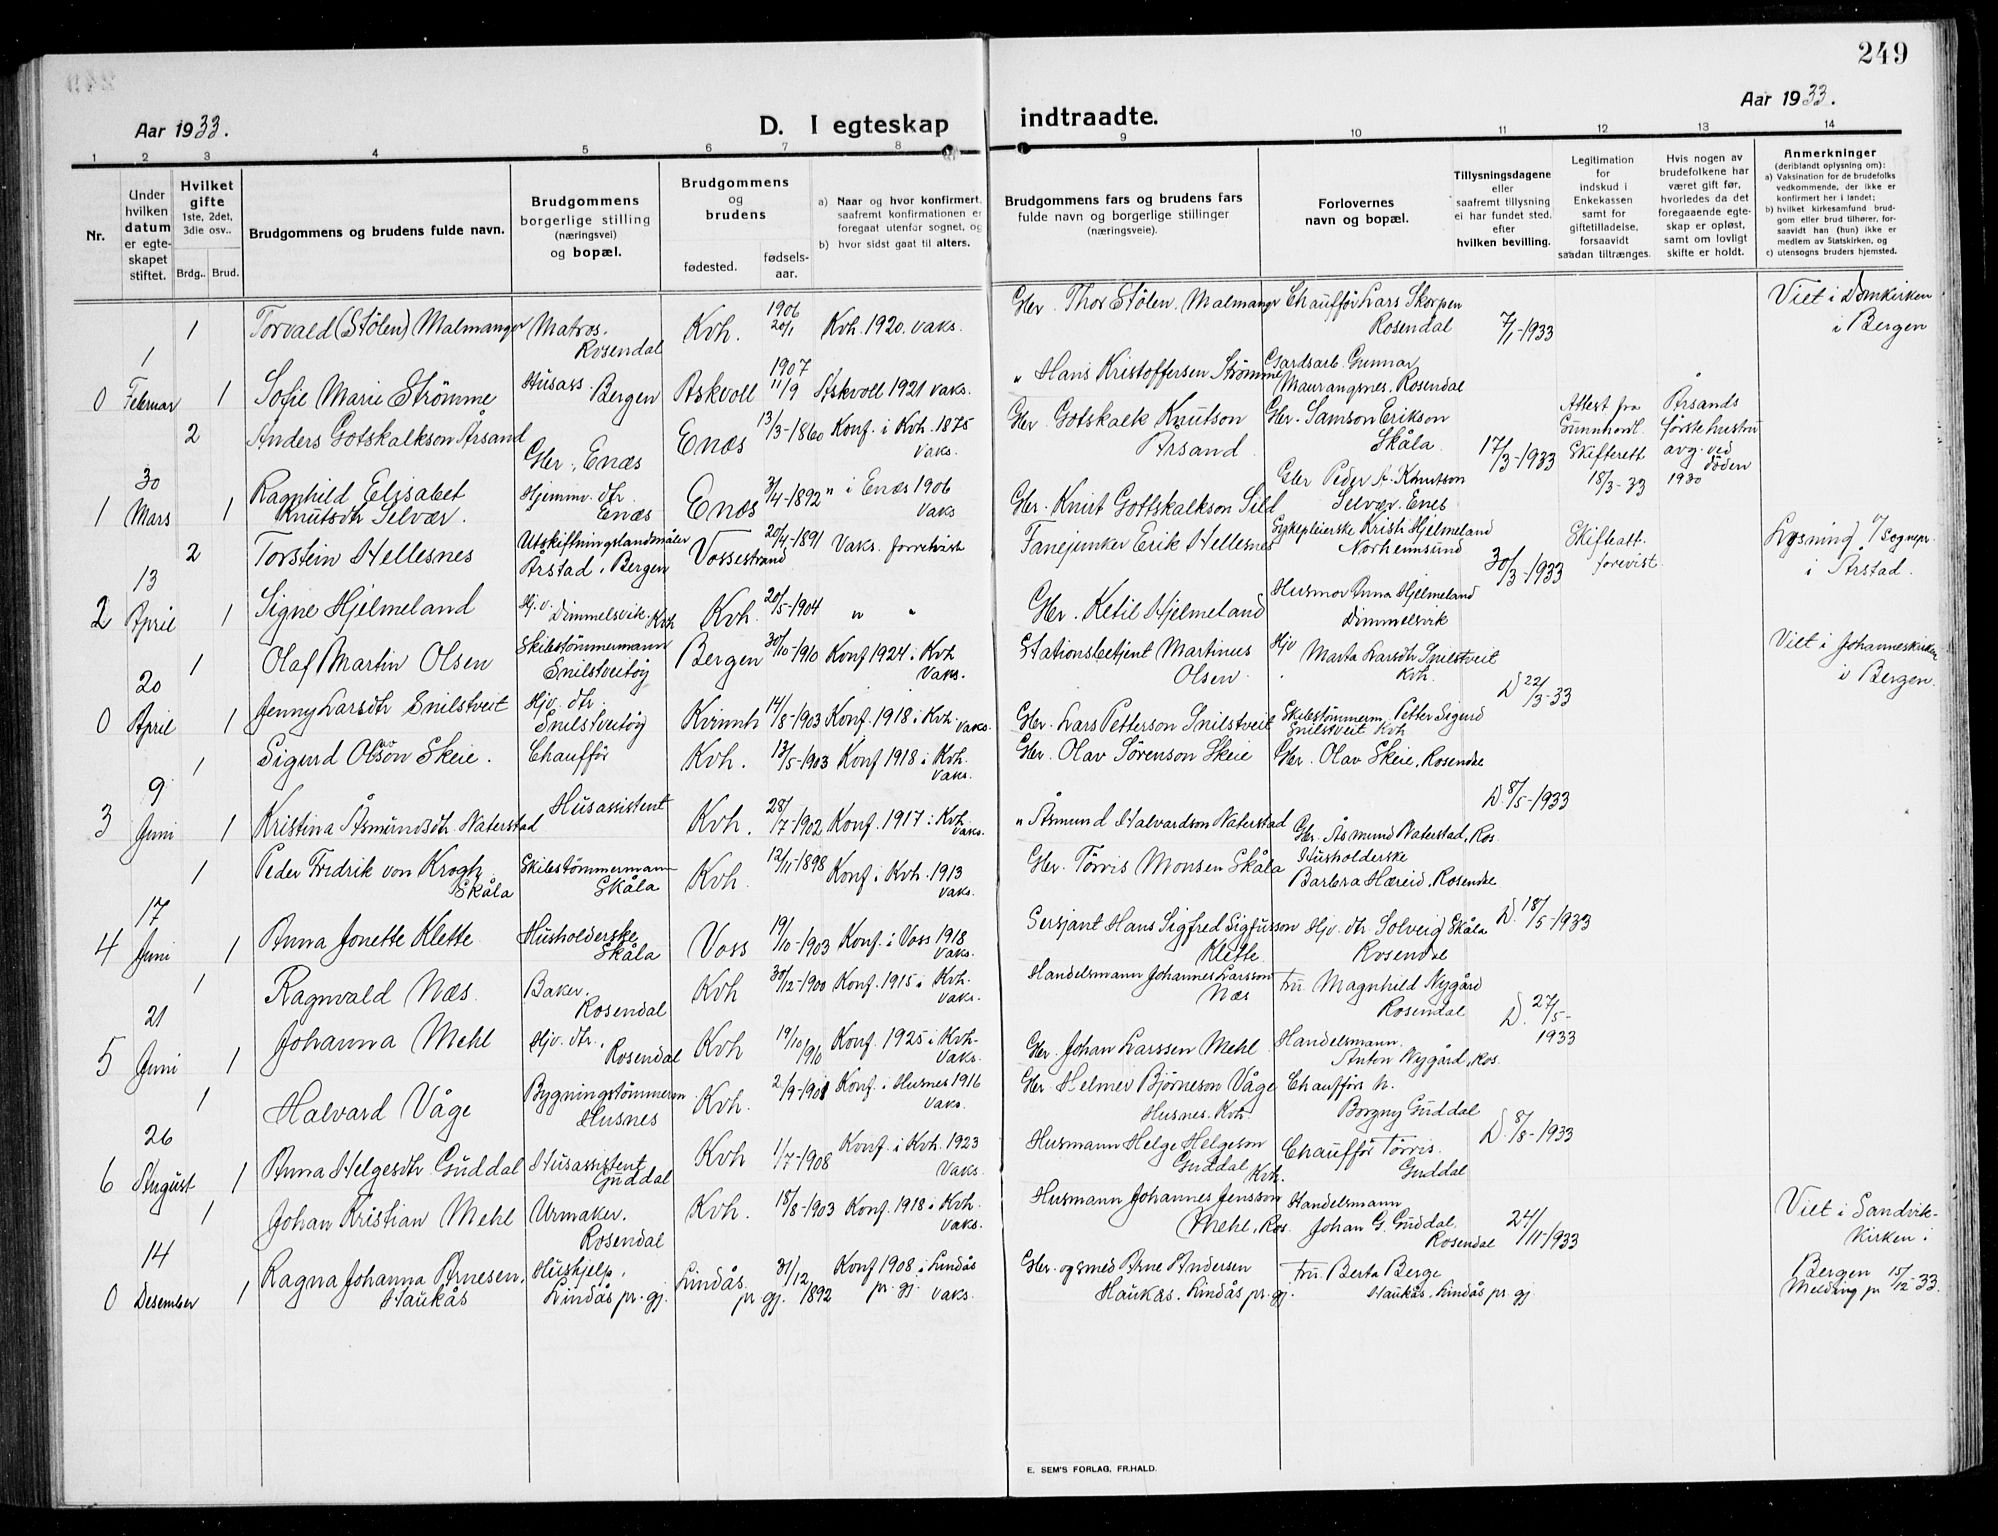 249
Aar 1933.
D. I egteskap indtraadte.
Aar 1933.
1 2 3 4 5 6 7 8 9 10 11 12 13 14
Nr.
Under hvilken datum er egteskapet stiftet.
Hvilket gifte
1ste, 2det, 3die osv..
Brdg.. Brud.
Brudgommens og brudens fulde navn.
Brudgommens borgerlige stilling (næringsvei) og bopæl.
Brudgommens og brudens
fødested.
fødsels-aar.
a) Naar og hvor konfirmert, saafremt konfirmationen er foregaat utenfor sognet, og
b) hvor sidst gaat til alters.
Brudgommens fars og brudens fars fulde navn og borgerlige stillinger (næringsveie).
Forlovernes navn og bopæl.
Tillysningsdagene eller saafremt tillysning ei har fundet sted. efter hvilken bevilling.
Legitimation for indskud i Enkekassen samt for giftetilladelse, forsaavidt saadan tiltrænges.
Hvis nogen av brudefolkene har været gift før, hvorledes da det foregaaende egteskap er opløst, samt om lovligt skifte er holdt.
Anmerkninger
(deriblandt oplysning om):
a) Vaksination for de brudefolks vedkommende, der ikke er konfirmert her i landet;
b) hvilket kirkesamfund brudgom eller brud tilhører, forsaavidt han (hun) ikke er medlem av Statskirken, og
c) utensogns bruders hjemsted.
1 Torvald (Stølen) Malmanger Matros. Rosendal Kvh. 1906 20/1 Kvh. 1920. vaks. Gbr. Thor Stølen, Malmanger Chauffør Lars Skorpen Rosendal 7/1-1933 Viet i Domkirken i Bergen
0 1 Februar 1 Sofie Marie Strømme Husass. Bergen Askvoll 1907 11/9 Askvoll 1921 vaks. " Hans Kristoffersen Strømme Gardsarb. Gunnar Maurangsnes, Rosendal
2 Anders Gotskalkson Årsand Gbr., Enæs Enæs 13/3-1860 Konf. i Kvh. 1875 Vaks. Gbr. Gotskalk Knutson Årsand Gbr. Samson Erikson Skåla 17/3-1933 Attest fra Sunnhordl. Skifterett 18/3-33 Årsands første hustru avg. ved døden 1930
1 30 Mars 1 Ragnhild Elisabet Knutsdtr Selvær. Hjemmv. dtr. Enæs Enæs 3/4-1892 " i Enæs 1906 Vaks Gbr. Knut Gottskalkson Gbr Peder A. Knutson Selvær, Enes
2 Torstein Hellesnes Utskiftningslandmåler Årstad, Bergen Vossestrand 20/4-1891 Vaks. forretvist Fanejunker Erik Hellesnes Sykepleierske Krist. Hjelmeland Norheimsund 30/3-1933 Skifteatt. forevist. Lysning v/ Sognepr. i Årstad.
2 13 April 1 Signe Hjelmeland Hj.v. Dimmelsvik, Kvh Kvh. 20/5-1904 " " Gbr. Ketil Hjelmeland Husmor Anna Hjelmeland Dimmelsvik
1 Olaf Martin Olsen Skibstømmermann Snilstveitøy Bergen 30/10-1910 Konf 1924 i Kvh Vaks. Stationsbetjent Martinus Olsen Hjv Marta Larsdtr Snilstveit Kvh. D 22/3-33 Viet i Johanneskirken i Bergen.
0 20 April 1 Jenny Larsdtr Snilstveit Hjv. dtr. Snilstveitøy Kvinnh 14/8-1903 Konf. 1918 i Kvh. Vaks. Gbr. Lars Petterson Snilstveit Skibstømmerm. Petter Sigurd Snilstveit Kvh
1 Sigurd Olsøn Skeie. Chauffør Kvh. 13/5-1903 Konf 1918 i Kvh. Vaks. Gbr. Olav Sørenson Skeie Gbr. Olav Skeie, Rosendal D. 8/5-1933
3 9 Juni 1 Kristina Åsmundsdtr Naterstad Husassistent Kvh. 28/7-1902 Konf. 1917 i Kvh. Vaks. " Åsmund Halvardson Naterstad Gbr. Åsmund Naterstad, Ros.
1 Peder Fredrik von Krogh Skåla Skibstømmermann Skåla Kvh. 12/11-1898 Konf. i Kvh. 1913 Vaks. Gbr. Tørris Monsen Skåla Husholderske Barbra Hæreid, Rosendal D. 18/5-1933
4 17 Juni 1 Anna Jonette Klette Husholderske, Skåla Voss 19/10-1903 Konf. i Voss 1918 Vaks. Sersjant Hans Sigfred Sigfusson Klette Hjv. dtr Solveig Skåla Rosendal
1 Ragnvald Næs. Baker. Rosendal Kvh 30/12-1900 Konf. 1915 i Kvh. Vaks. Handelsmann Johannes Larsson Næs Fru Magnhild Nygård Rosendal D. 27/5-1933
5 21 Juni 1 Johanna Mehl Hjv. dtr. Rosendal Kvh 19/10 1910 Konf. 1925 i Kvh. Vaks. Gbr. Johan Larssen Mehl Handelsmann. Anton Nygård, Ros.
1 Halvard Våge Bygningstømmerm. Husnes Kvh. 2/9-1901 Konf. i Husnes 1916 Vaks. Gbr. Helmer Bjørneson Våge Husnes. Kvh. Chauffør h. Borgny Guddal D. 8/8-1933
6 26 August 1 Anna Helgesdtr Guddal Husassistent Guddal Kvh 1/7-1908 Konf. i Kvh. 1923 Vaks. Husmann Helge Helgeson Guddal Kvh. Chauffør Tørris. Guddal
1 Johan Kristian Mehl Urmaker. Rosendal Kvh. 18/8-1903 Konf. 1918 i Kvh. Vaks. Husmann Johannes Jensson Mehl, Ros. Handelsmann Johan G. Guddal, Rosendal 24/11-1933 Viet i Sandvikkirken i Bergen 15/12-33. Melding pr
0 14 Desember 1 Ragna Johanna Arnesen, Haukås Hushjelp, Lindås pr. gj. Lindås pr gj. 31/12 1892 Konf 1908 i Lindås pr. gj. Vaks. Gbr. og smed Arne Andersen Haukås. Lindås pr. gj. Fru Berta Berge Haukås, Lindås pr. gj
E. SEM'S FORLAG, FR.HALD.